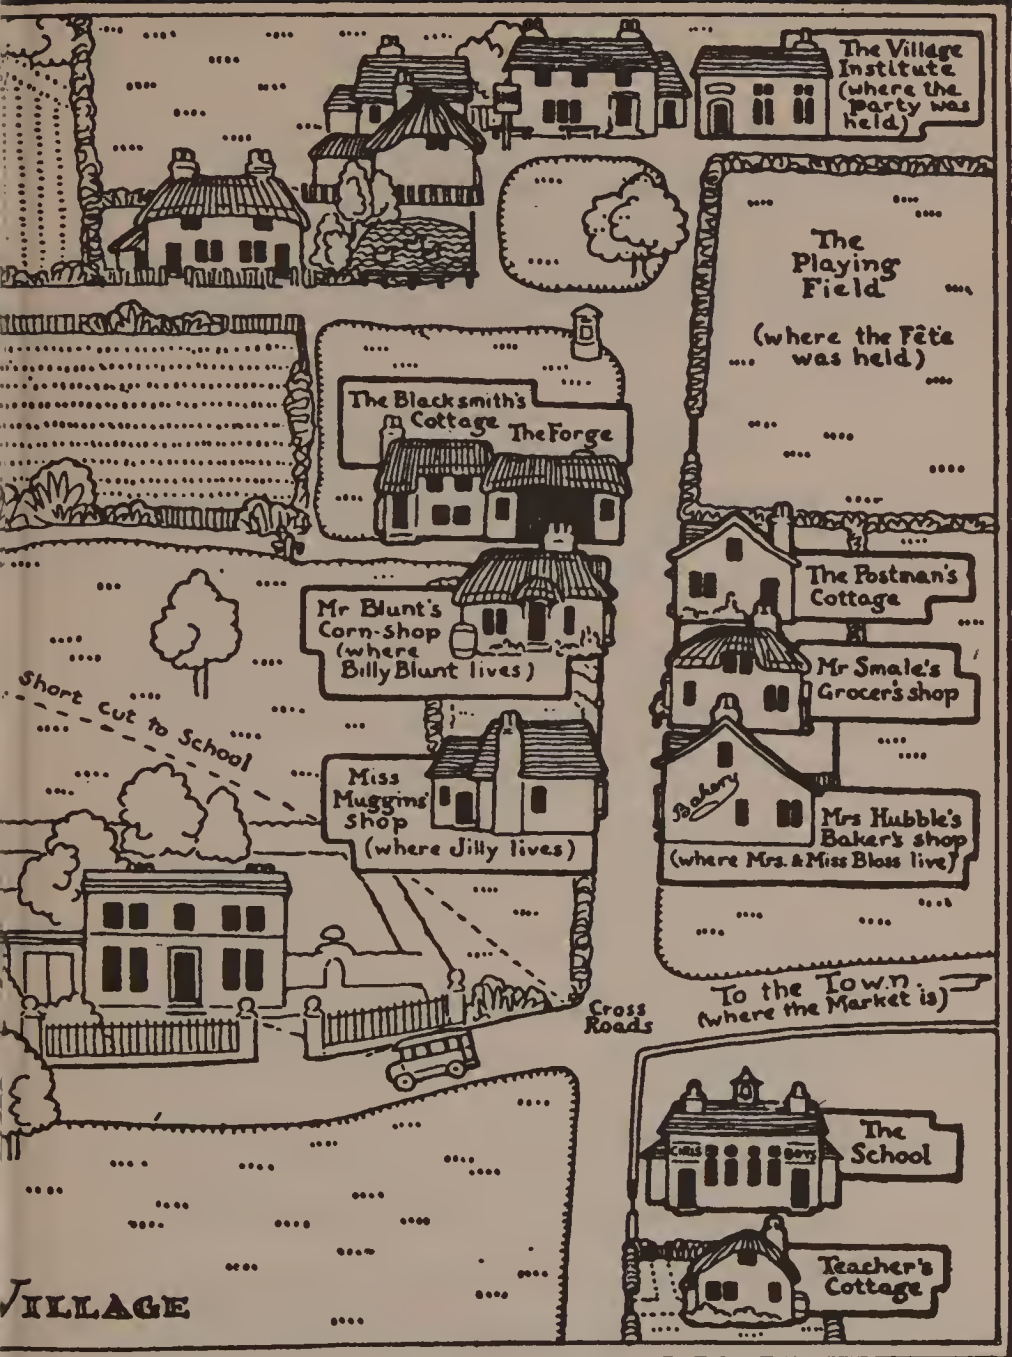 The Village
Institute
(where the
party was
held)
The
Playing
Field
(where the Fête
was held)
The Blacksmith's
Cottage
The Forge
The Postman's
Cottage
Mr Blunt's
Corn-shop
(where
Billy Blunt lives)
Mr Smale's
Grocer's shop
Short cut to School
Miss
Muggins'
shop
(where Jilly lives)
Bakery
Mrs Hubble's
Baker's shop
(where Mrs. & Miss Bloss live)
To the Town.
(where the Market is)
Cross
Roads
The
School
GIRLS
BOYS
Teacher's
Cottage
VILLAGE